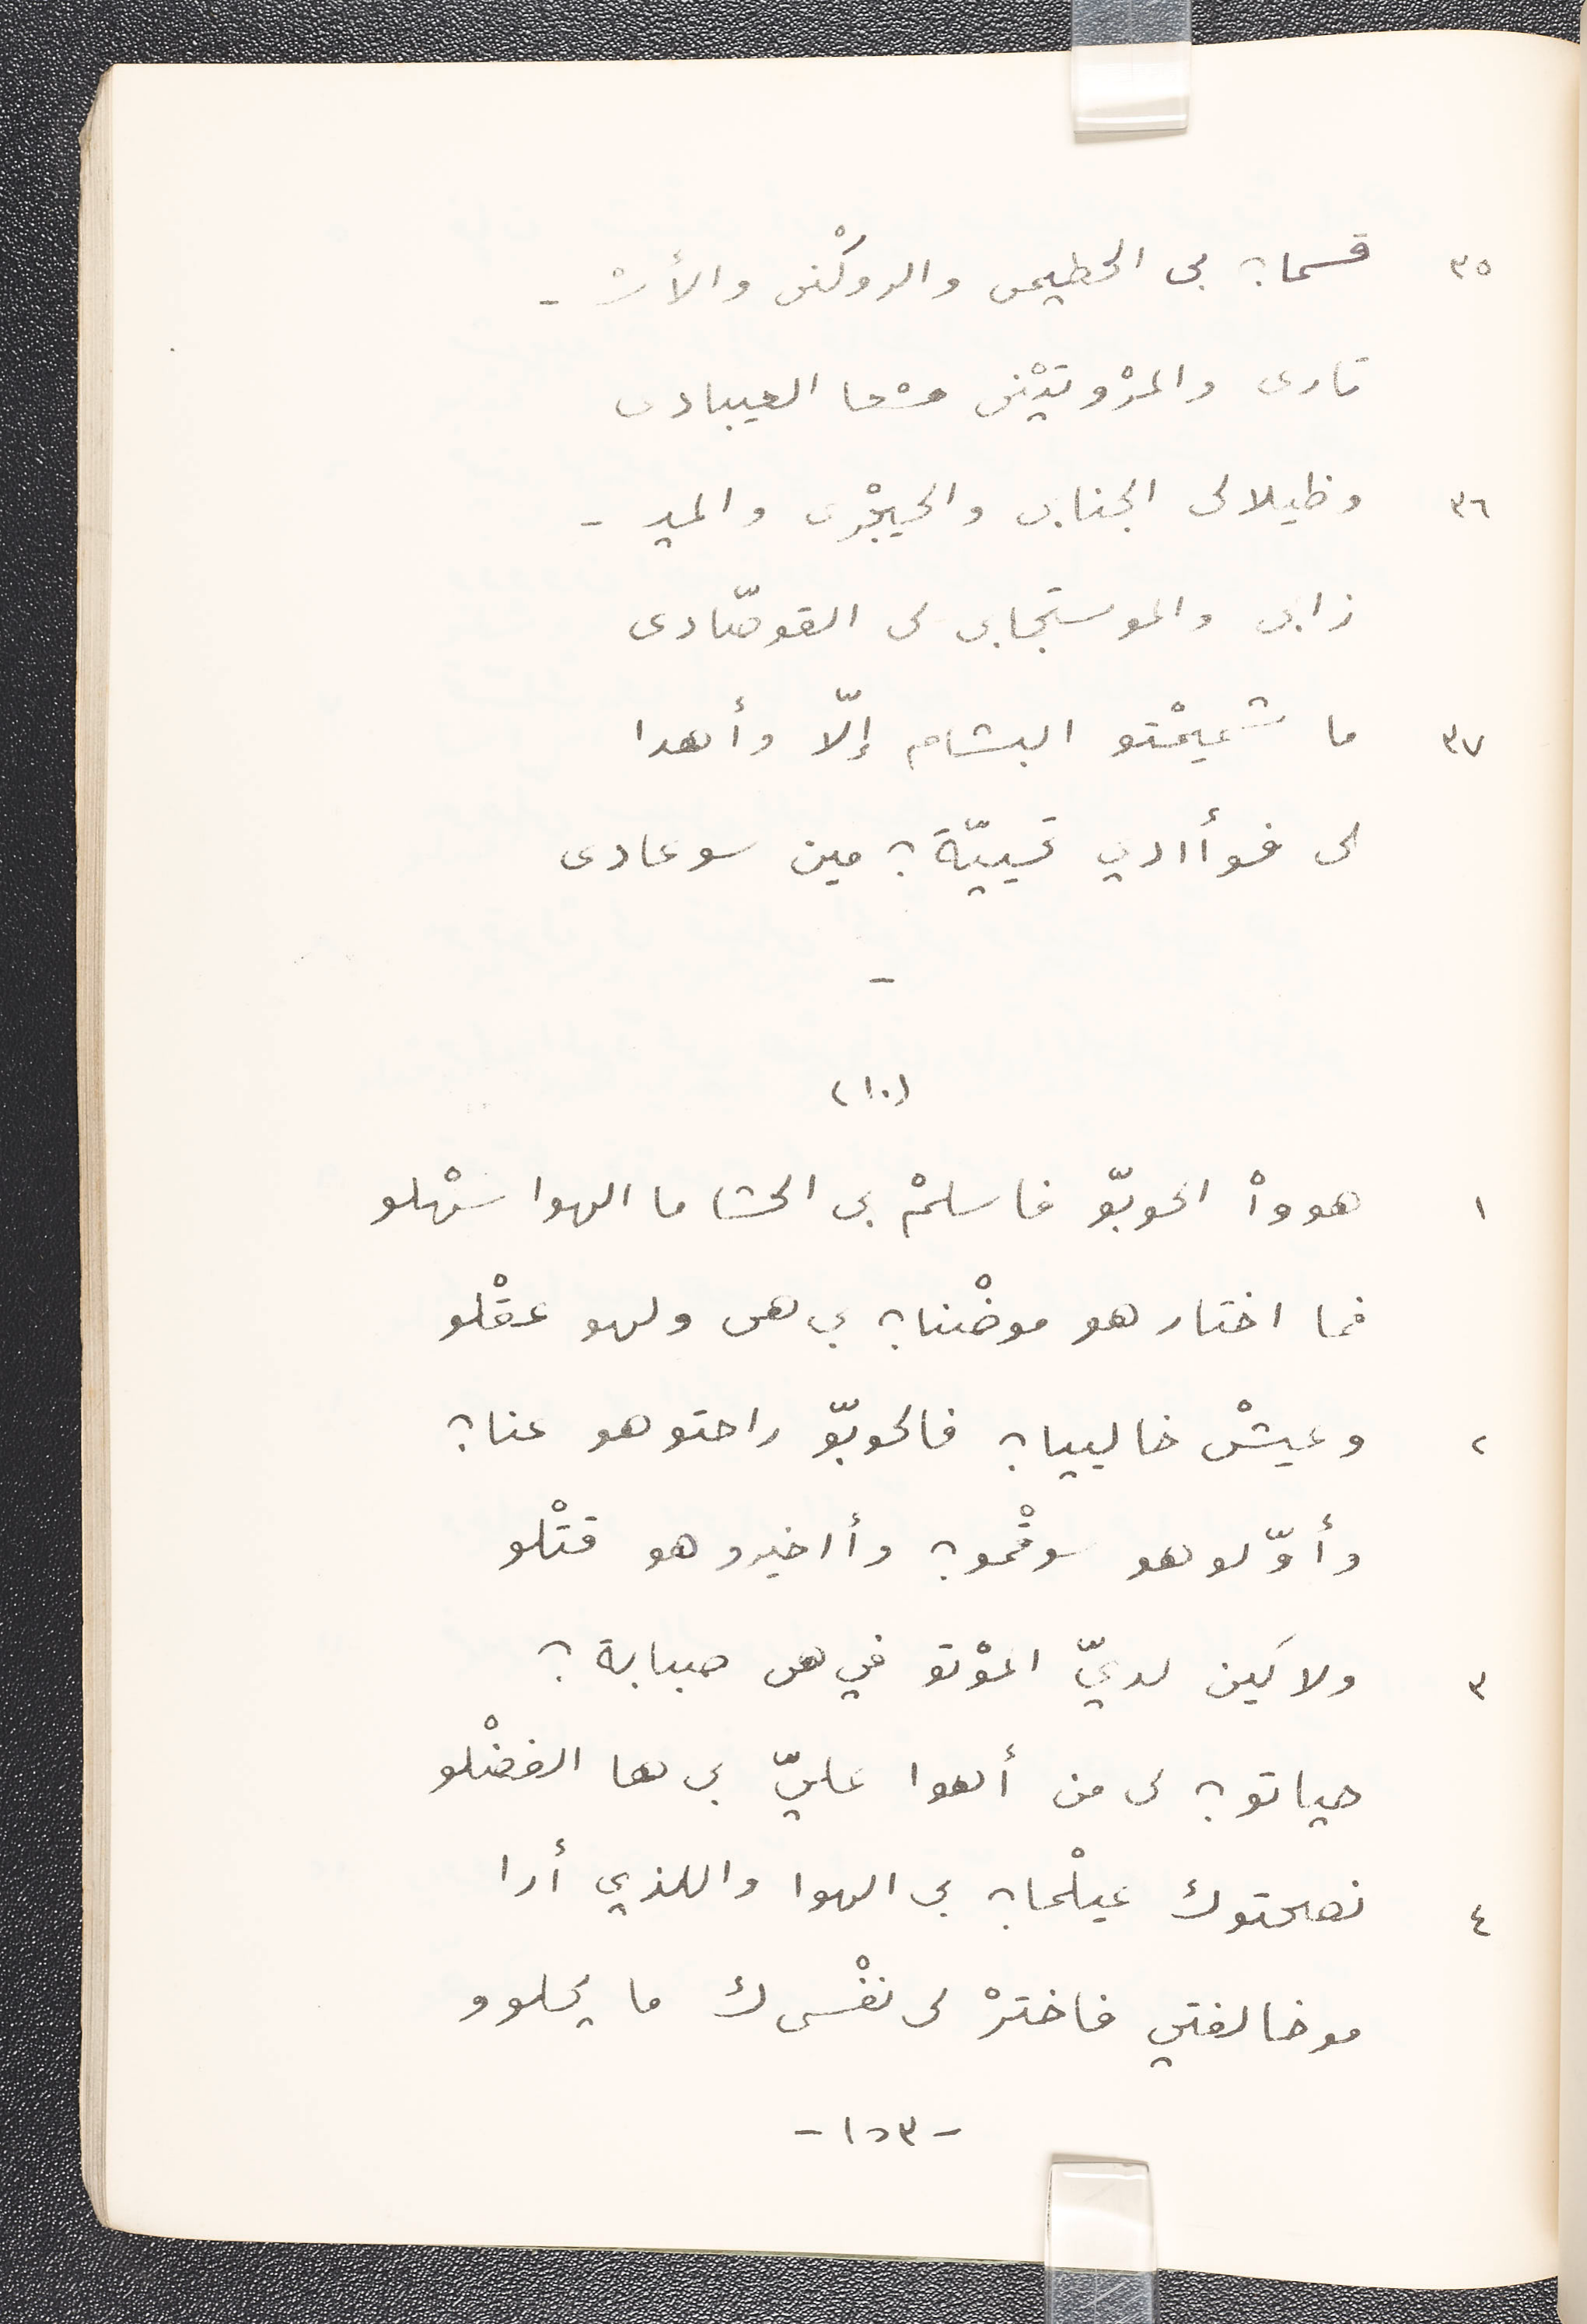 ٣٥ قسما؟ بى الحطيمى والروكْنى والأسْ -
تارى والمرْوتيْنى مسْعا العيبادى
٣٦ وظيلالى الجنابى والحيجْرى والميـ -
زابى والموستجابى لى القوصّادى
٣٧ ما شميمْتو البشام إلّا وأهدا
لى فوأادي تحييّة؟ مين سوعادى
-
(١٠)
١ هووآْ الحوبّو فاسلمْ بى الحشا ما الهوا سهْلو
فما اختارهو موضْنا؟ بى هى ولهو عقْلو
٢ وعيشْ خالييا؟ فالحوبّو راحتوهو عنا؟
وأوّلوهو سوقْمو؟ وأاخيروهو قتْلو
٣ ولاكين لديّ الموْتو في هى صبابة؟
حياتو؟ لى من أهوا عليّ بى ها الفضْلو
٤ نصحتوك عيلْما؟ بى الهوا واللذي أرا
موخالفتي فاخترْ لى نفْسى ك ما يحلوو
-١٥٣-